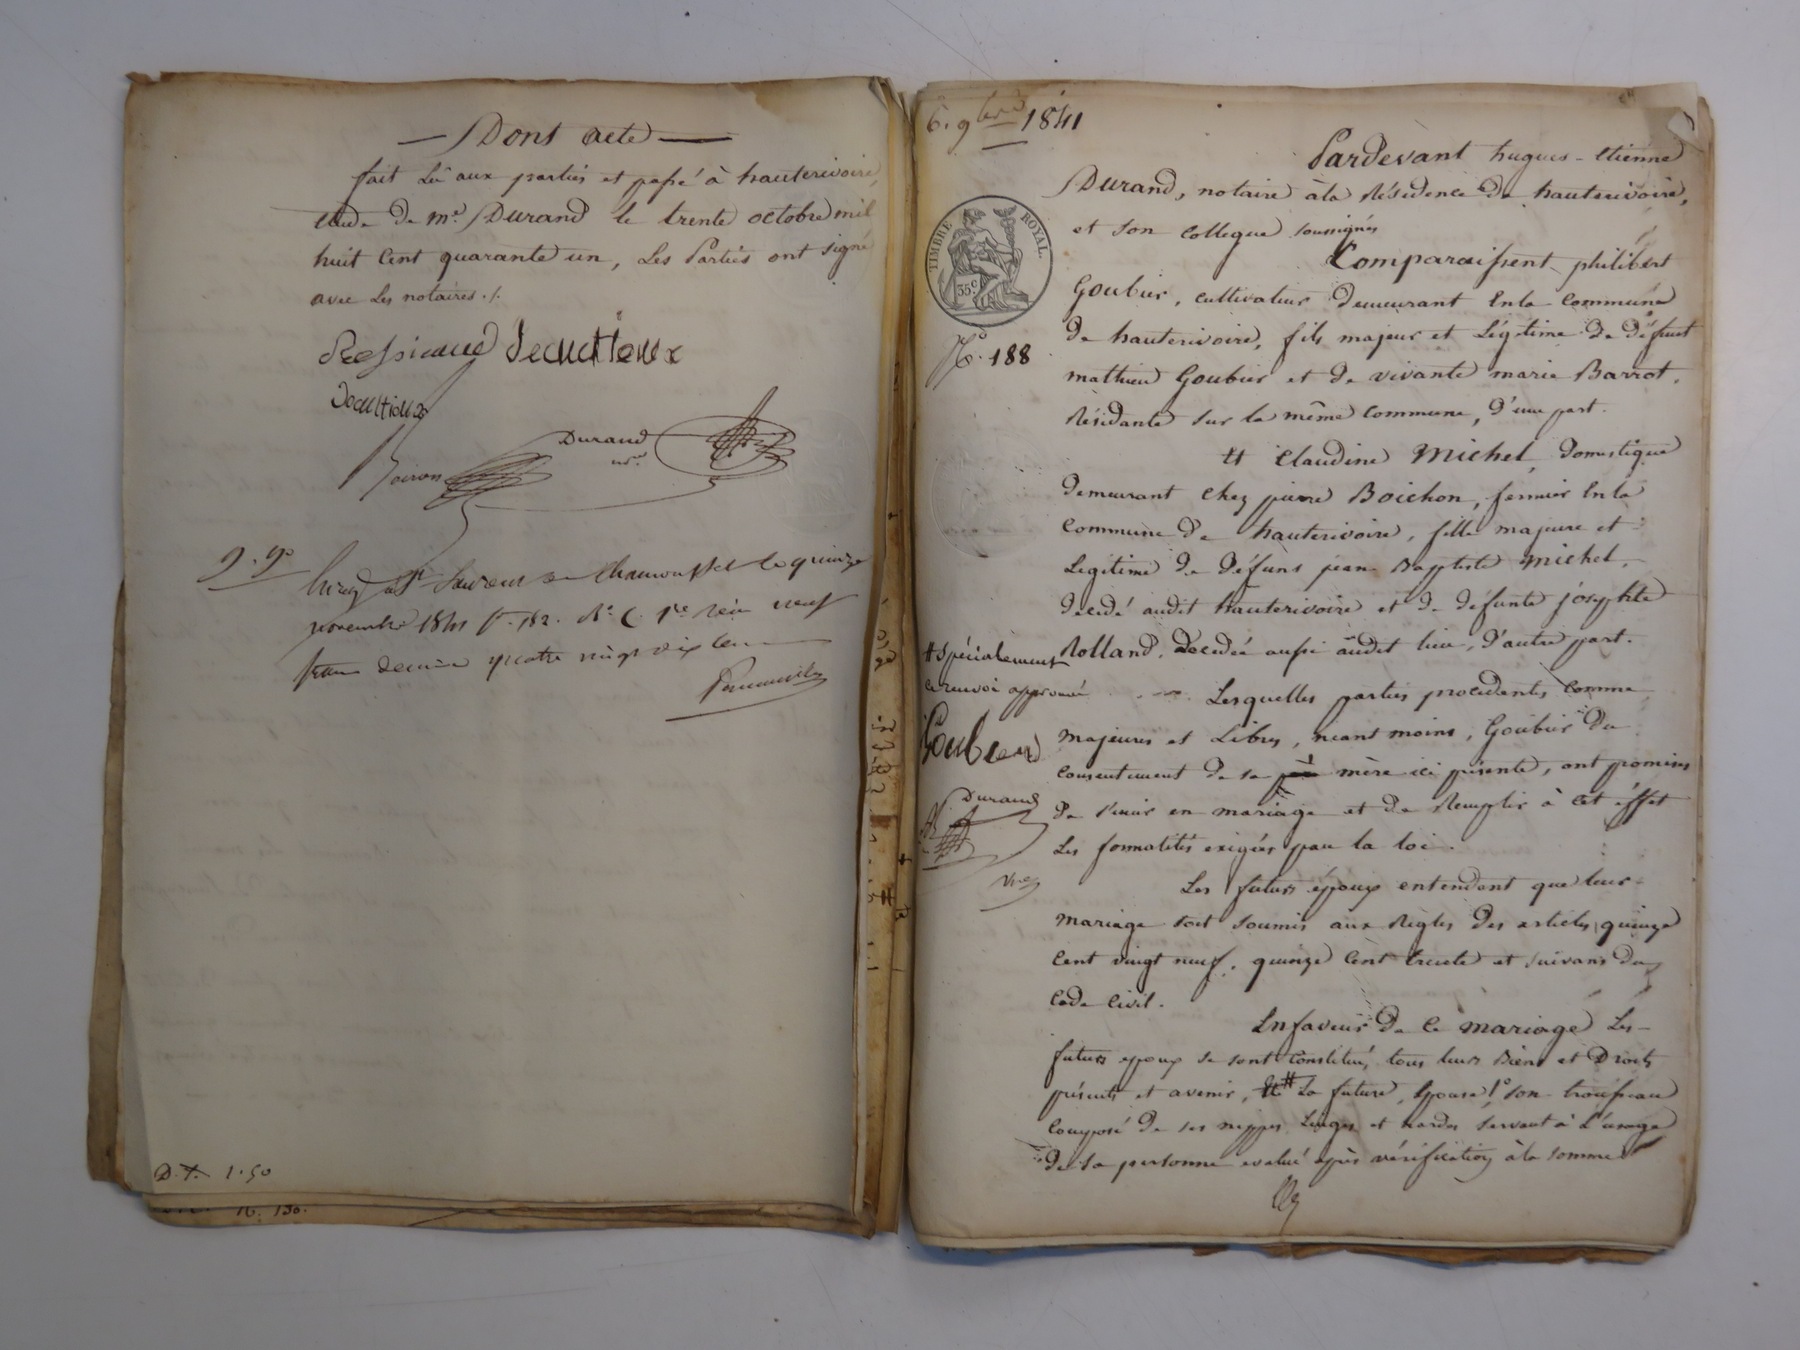 Dont acte
fait Lû aux parties et passé à hauterivoire,
Etude de me. Durand le trente octobre mil
huit Cent quarante un, Les Parties ont signé
avec Les notaires ./.
Durand
nre.
9.90
St Laurent de Chamousset le quinze
novembre 1841 fo. 182. Ro. C. 1re reçu neuf
francs decime quatre vingt dix cen
D.t. 1.50
6. 9bre 1841
TIMBRE ROYAL.
35c
No. 188
Pardevant hugues-Etienne
Durand, notaire à la Résidence de hauterivoire,
et son Collegue soussignés
Comparaissent philibert
Goubier, cultivateur demeurant En la Commune
de hauterivoire, fils majeur et Légitime de défunt
mathieu Goubier et de vivante marie Barrot,
Résidante sur la même Commune, d'une part.
Et Claudine Michel, domestique
demeurant chez pierre Boichon, fermier En la
Commune de hauterivoire, fille majeure et
Légitime de défunt jean Baptiste Michel,
décédé audit hauterivoire et de défunte josephte
Rolland, Décédée aussi audit lieu, d'autre part.
Lesquelles parties procédantes Comme
majeures et Libres, neant moins, Goubier du
Consentement de sa mère ici présente, ont promises
de s'unir en mariage et de Remplir à Cet éffet
Les formalités exigées par la loi.
Les futurs époux entendent que leur
mariage soit soumis aux Règles des articles quinze
Cent vingt neuf, quinze Cent trente et suivans du
Code Civil.
En faveur de Ce mariage Les
futurs epoux se sont Constitué, tous leurs Biens et Droits
présents et avenir, Et # La future Epouse 1o son trousseau
Composé de ses nippes Linges et hardes servant à L'usage
de sa personne evalué après vérification à la somme
# spécialement
ce renvoi approuvé
Goubier
Durand
nre